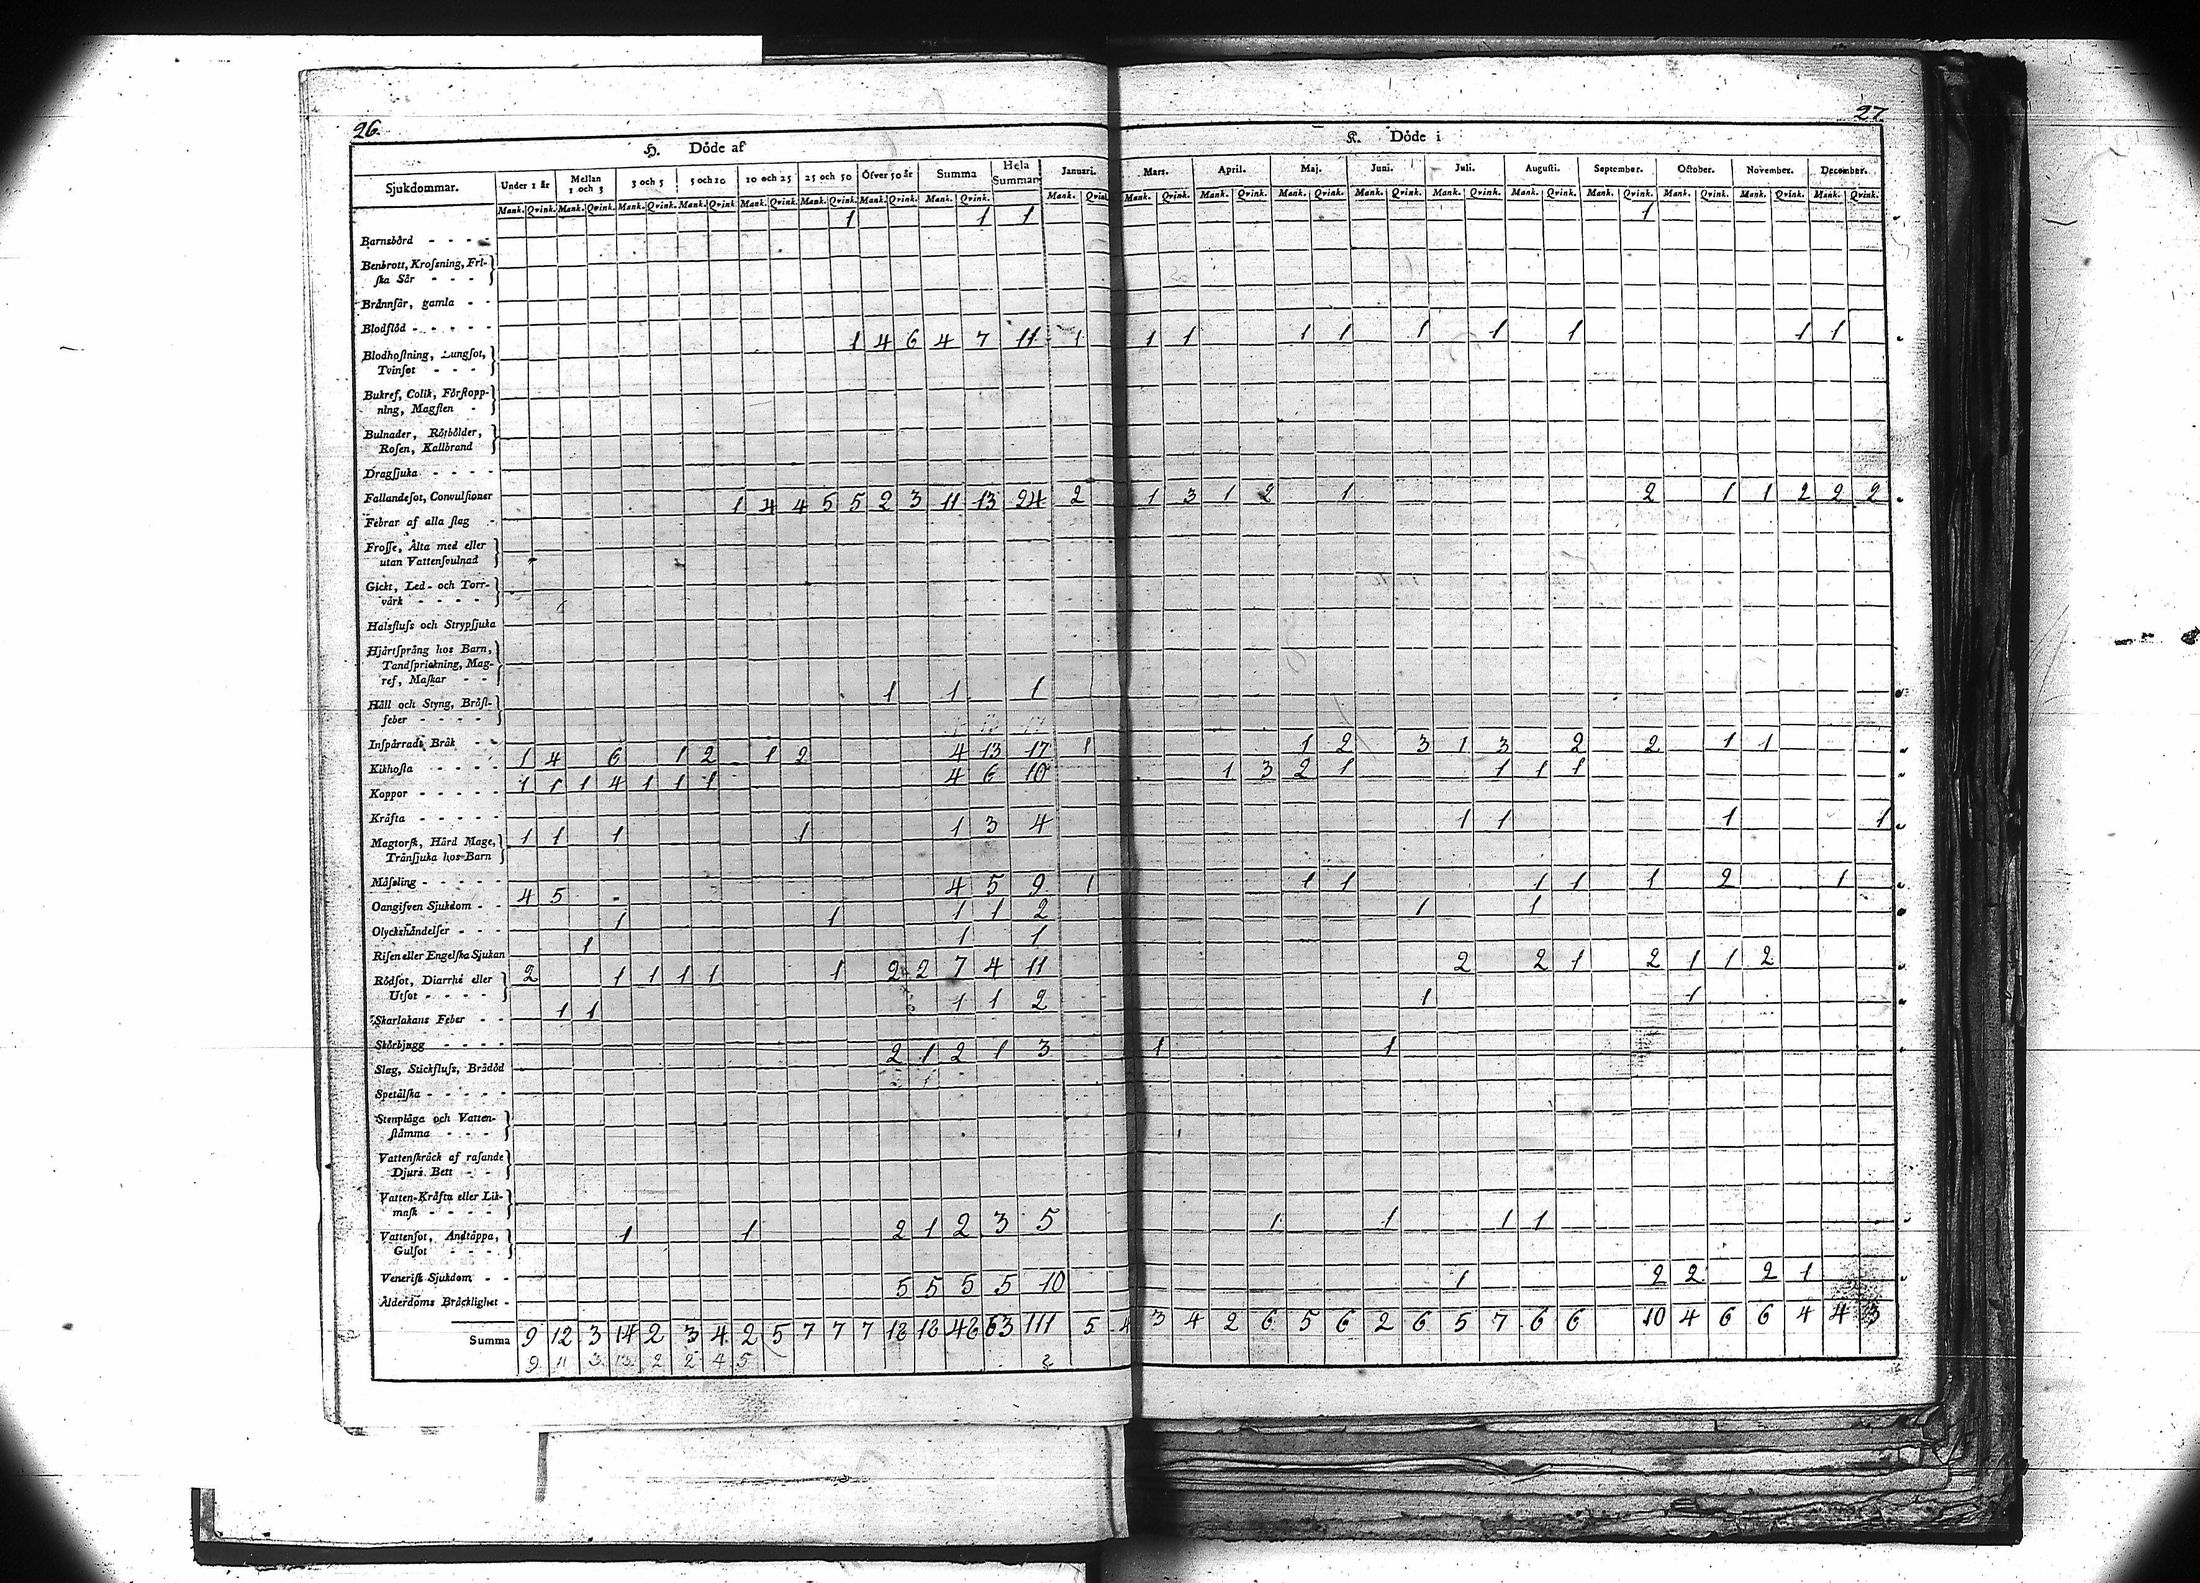 26.
27.
H. Döde af
K. Döde i
Sjukdommar. Under 1 år Mellan 1 och 3 3 och 5 5 och 10 10 och 25 25 och 50 Öfver 50 år Summa Hela Summan Januari. Mars. April. Maj. Juni. Juli. Augusti. September. October. November. December.
Mank. Qvink. Mank. Qvink. Mank. Qvink. Mank. Qvink. Mank. Qvink. Mank. Qvink. Mank. Qvink. Mank. Qvink. Mank. Qvink. Mank. Qvink. Mank. Qvink. Mank. Qvink. Mank. Qvink. Mank. Qvink. Mank. Qvink. Mank. Qvink. Mank. Qvink. Mank. Qvink. Mank. Qvink.
1 1 1 1
Barnsbörd - - - -
Benbrott, Kroſsning, Fri-
ſka Sår - - -
Brännſår, gamla - -
Blodflöd - - - - - -
1 4 6 4 7 11 1 1 1 1 1 1 1 1 1 1
Blodhoſtning, Lungſot,
Tvinſot - - -
Bukref, Colik, Förſtopp-
ning, Magſten -
Bulnader, Rötbölder,
Roſen, Kallbrand
Dragſjuka - - - -
Fallandeſot, Convulſioner
1 4 4 5 5 2 3 11 13 24 2 1 3 1 2 1 2 1 1 2 2 2
Febrar af alla ſlag -
Froſſe, Älta med eller
utan Vattenſvulnad
Gickt, Led- och Torr-
värk - - - -
Halsfluſs och Strypſjuka
Hjärtſprång hos Barn,
Tandſprickning, Mag-
ref, Maſkar - -
1 1 1
Håll och Styng, Bröſt-
feber - - - -
Inſpärradt Bråk - -
1 4 6 1 2 1 2 4 13 17 1 1 2 3 1 3 2 2 1 1
Kikhoſta - - - -
1 1 1 4 1 1 1 4 6 10 1 3 2 1 1 1 1
Koppor - - - - -
Kräfta - - - - -
1 1 1 1 1 3 4 1 1 1 1
Magtorſk, Hård Mage,
Trånſjuka hos Barn
Mäſsling - - - - -
4 5 4 5 9 1 1 1 1 1 1 2 1
Oangifven Sjukdom - -
1 1 1 1 2 1 1
Olyckshändelſer - - -
1 1 1
Riſen eller Engelſka Sjukan
2 1 1 1 1 1 2 2 7 4 11 2 2 1 2 1 1 2
Rödſot, Diarrhé eller
Utſot - - - -
1 1 1 1 2 1 1
Skarlakans Feber - -
Skörbjugg - - - -
2 1 2 1 3 1 1
Slag, Stickfluſs, Brådöd
Spetälſka - - - - -
Stenplåga och Vatten-
ſtämma - - -
Vattenſkräck af raſande
Djurs Bett - -
Vatten-Kräfta eller Lik-
maſk - - - -
1 1 2 1 2 3 5 1 1 1 1
Vattenſot, Andtäppa,
Gulſot - - -
Veneriſk Sjukdom - -
5 5 5 5 10 1 2 2 2 1
Ålderdoms Bräcklighet -
Summa 9 12 3 14 2 3 4 2 5 7 7 7 18 18 48 63 111 5 4 3 4 2 6 5 6 2 6 5 7 6 6 10 4 6 6 4 4 3
9 11 3 13 2 2 4 5